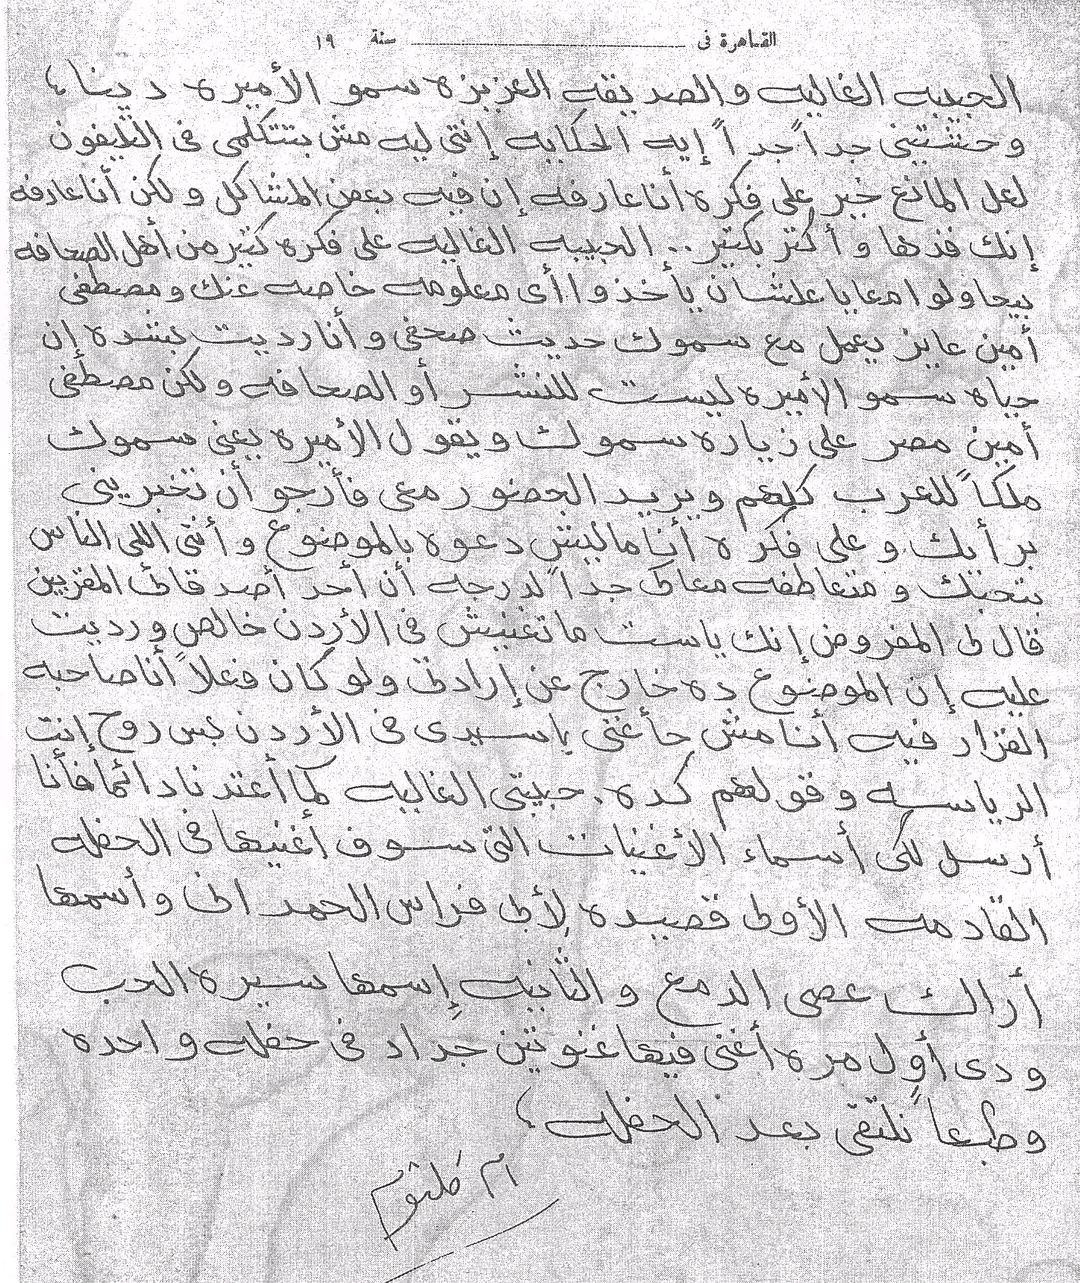 القاهرة فى ـــــــــــــــــ سنة ١٩
الحبيبه الغاليه والصديقه العزيزه سمو الأميره دينا،
وحشتيني جداً جداً إيه الحكايه إنتى ليه مش بتتكلمى فى التليفون
لعل المانع خير على فكره أنا عارفه إن فيه بعض المشاكل ولكن أنا عارفه
إنك قدها وأكتر بكتير .. الحبيبه الغاليه على فكره كتير من أهل الصحافه
بيحاولوا معايا علشان يأخذوا أى معلومه خاصه عنك ومصطفى
أمين عايز يعمل مع سموك حديث صحفى وأنا رديت بشده إن
حياه سمو الأميره ليست للنشر أو الصحافه ولكن مصطفى
أمين مصر على زياره سموك ويقول الأميره يعنى سموك
ملكاً للعرب كلهم ويريد الحضور معى فأرجو أن تخبرينى
برأيك. وعلى فكره أنا ماليش دعوه بالموضوع وأنتى اللى الناس
بتحبك ومتعاطفه معاكى جداً لدرجه أن أحد أصدقائى المقربين
قال لى المفروض إنك ياست ماتغنيش فى الأردن خالص ورديت
عليه إن الموضوع ده خارج عن إرادتى ولو كان فعلاً أنا صاحبه
القرار فيه أنا مش حأغنى ياسيدى فى الأردن بس روح إنت
الرياسه وقولهم كده. حبيبتى الغاليه كما أعتدنا دائما فأنا
أرسل لكى أسماء الأغنيات التى سوف أغنيها فى الحفله
القادمه الأولى قصيده لأبى فراس الحمدانى وأسمها
أراك عصى الدمع والثانيه إسمها سيره الحب
ودى أول مره أغنى فيها غنوتين جداد فى حفله واحده
وطبعاً نلتقى بعد الحفله،
ام كلثوم